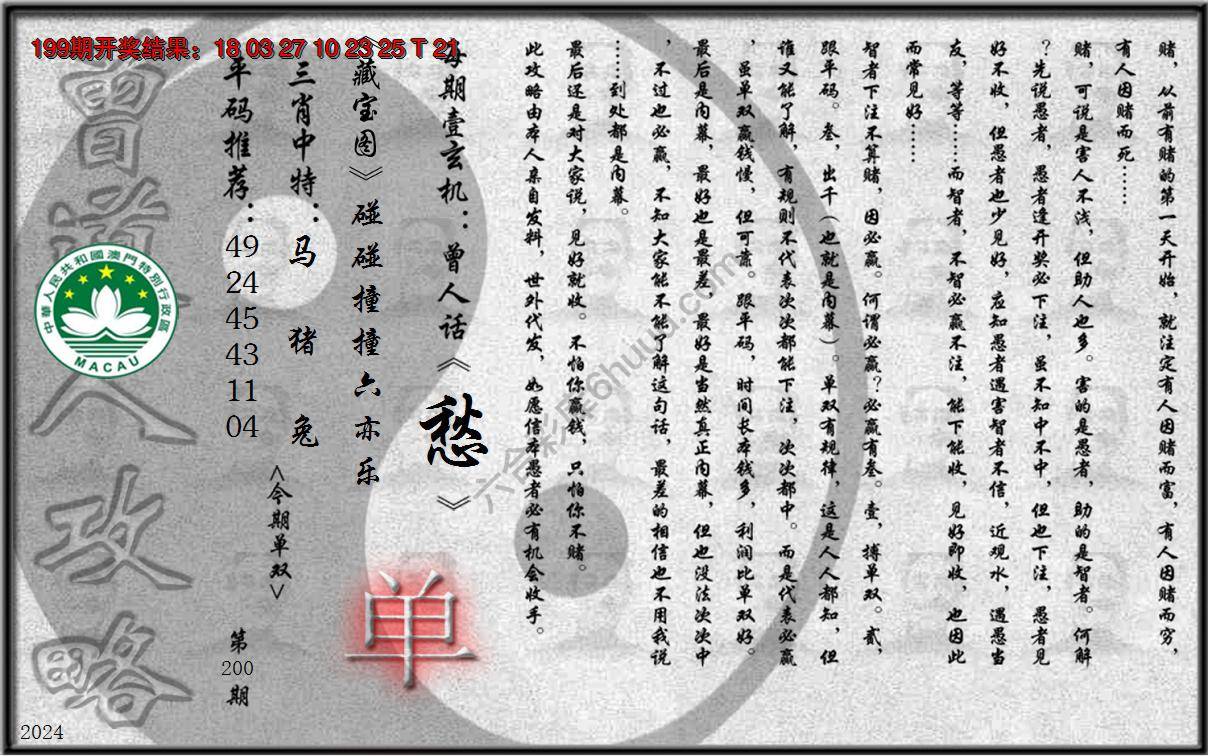 199期开奖结果：18 03 27 10 23 25 T 21
赌，从前有赌的第一天开始，就注定有人因赌而富，有人因赌而穷，
有人因赌而死……
赌，可说是害人不浅，但助人也多。害的是愚者，助的是智者。何解
？先说愚者，愚者逢开奖必下注，虽不知中不中，但也下注，愚者见
好不收，但愚者也少见好，应知愚者遇害智者不信，近观水，遇愚当
友，等等……而智者，不智必赢不注，能下能收，见好即收，也因此
而常见好……
智者下注不算赌，因必赢。何谓必赢？必赢有叁。壹，搏单双。贰，
跟平码。叁，出千（也就是内幕）。单双有规律，这是人人都知，但
谁又能了解，有规则不代表次次都能下注，次次都中。而是代表必赢
，虽单双赢钱慢，但可靠。跟平码，时间长本钱多，利润比单双好。
最后是内幕，最好也是最差，最好是当然真正内幕，但也没法次次中
，不过也必赢，不知大家能不能了解这句话，最差的相信也不用我说
……到处都是内幕。
最后还是对大家说，见好就收。不怕你赢钱，只怕你不赌。
此攻略由本人亲自发料，世外代发，如愿信本愚者必有机会收手。
每期壹玄机：曾人话《愁》
《藏宝图》碰碰撞撞六亦乐
单
三肖中特：马 猪 兔
<今期单双>
平码推荐：
49
24
45
43
11
04
第
200
期
曾道人攻略
中華人民共和國澳門特別行政區
MACAU
2024